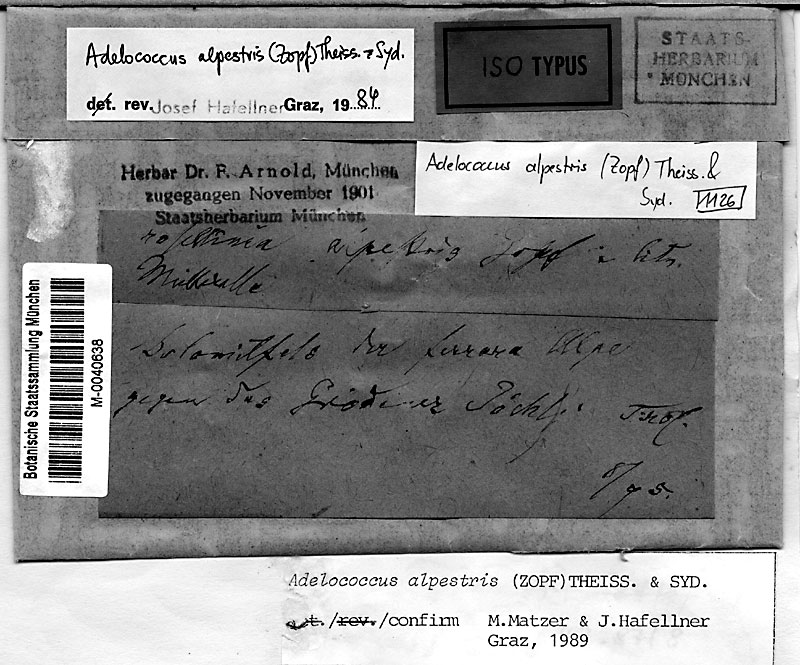 Adelococcus alpestris (Zopf) Theiss. & Syd.
det. rev. Josef Hafellner Graz, 1984
ISO TYPUS
STAATS-
HERBARIUM
MÜNCHEN
Herbar Dr. F. Arnold, München
zugegangen November 1901
Staatsherbarium München
Adelococcus alpestris (Zopf) Theiss. &
Syd. 1126
alpestris Zopf in lit.
Müllerella
Dolomitfels der ferrara Alpe
gegen das Grödener Töchl Tirol.
Botanische Staatssammlung München
M-0040638
Adelococcus alpestris (ZOPF)THEISS. & SYD.
det./rev./confirm M.Matzer & J.Hafellner
Graz, 1989